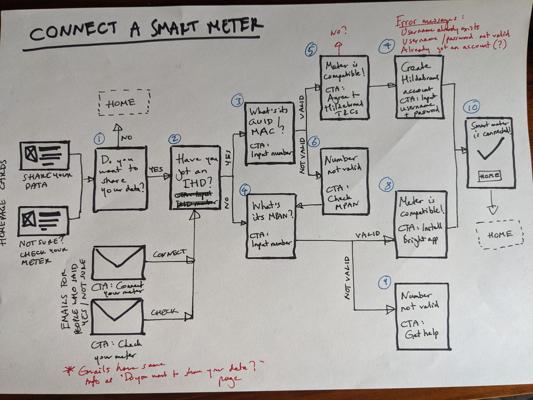 CONNECT A SMART METER
Error messages:
Username already exists
Username/password not valid
Already got an account(?)
NO?
HOME
HOMEPAGE CARDS
SHARE YOUR
DATA
NOT SURE?
CHECK YOUR
METER
1
Do you
want to
share
your data?
NO
YES
2
Have you
got an
IHD?
YES
NO
3
What's its
GUID/
MAC?
CTA:
Input number
VALID
NOT VALID
4
What's
its MPAN?
CTA:
Input number
VALID
NOT VALID
5
Meter is
compatible!
CTA:
Agree to
Hildebrand
T&Cs
6
Number not
valid
CTA:
Check
MPAN
Create
Hildebrand
account
CTA: Input
username
+ password
8
Meter is
compatible!
CTA: Install
Bright app
Number
not valid
CTA:
Get help
10
Smart meter
is connected!
HOME
HOME
EMAILS FOR
PEOPLE WHO SAID
YES/NOT SURE
CTA: Connect
your meter
CONNECT
CTA: Check
your meter
CHECK
* Emails have same
info as 'Do you want to share your data?'
page